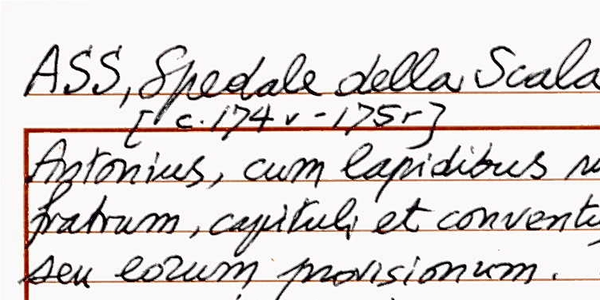 ASS, Spedale della Scala
[c. 174v - 175r]
Antonius, cum lapidibus
fratrum, capituli et convent
seu eorum provisionum.